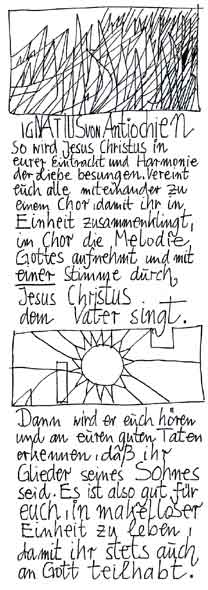 IGNATIUS VON Antiochien
So wird Jesus Christus in
eurer Eintracht und Harmonie
der Liebe besungen. Vereint
euch alle miteinander zu
einem Chor, damit ihr in
Einheit zusammenklingt,
im Chor die Melodie
Gottes aufnehmt und mit
einer Stimme durch
Jesus Christus
dem Vater singt.
Dann wird er euch hören
und an euren guten Taten
erkennen, daß ihr
Glieder seines Sohnes
seid. Es ist also gut für
euch, in makelloser
Einheit zu leben,
damit ihr stets auch
an Gott teilhabt.